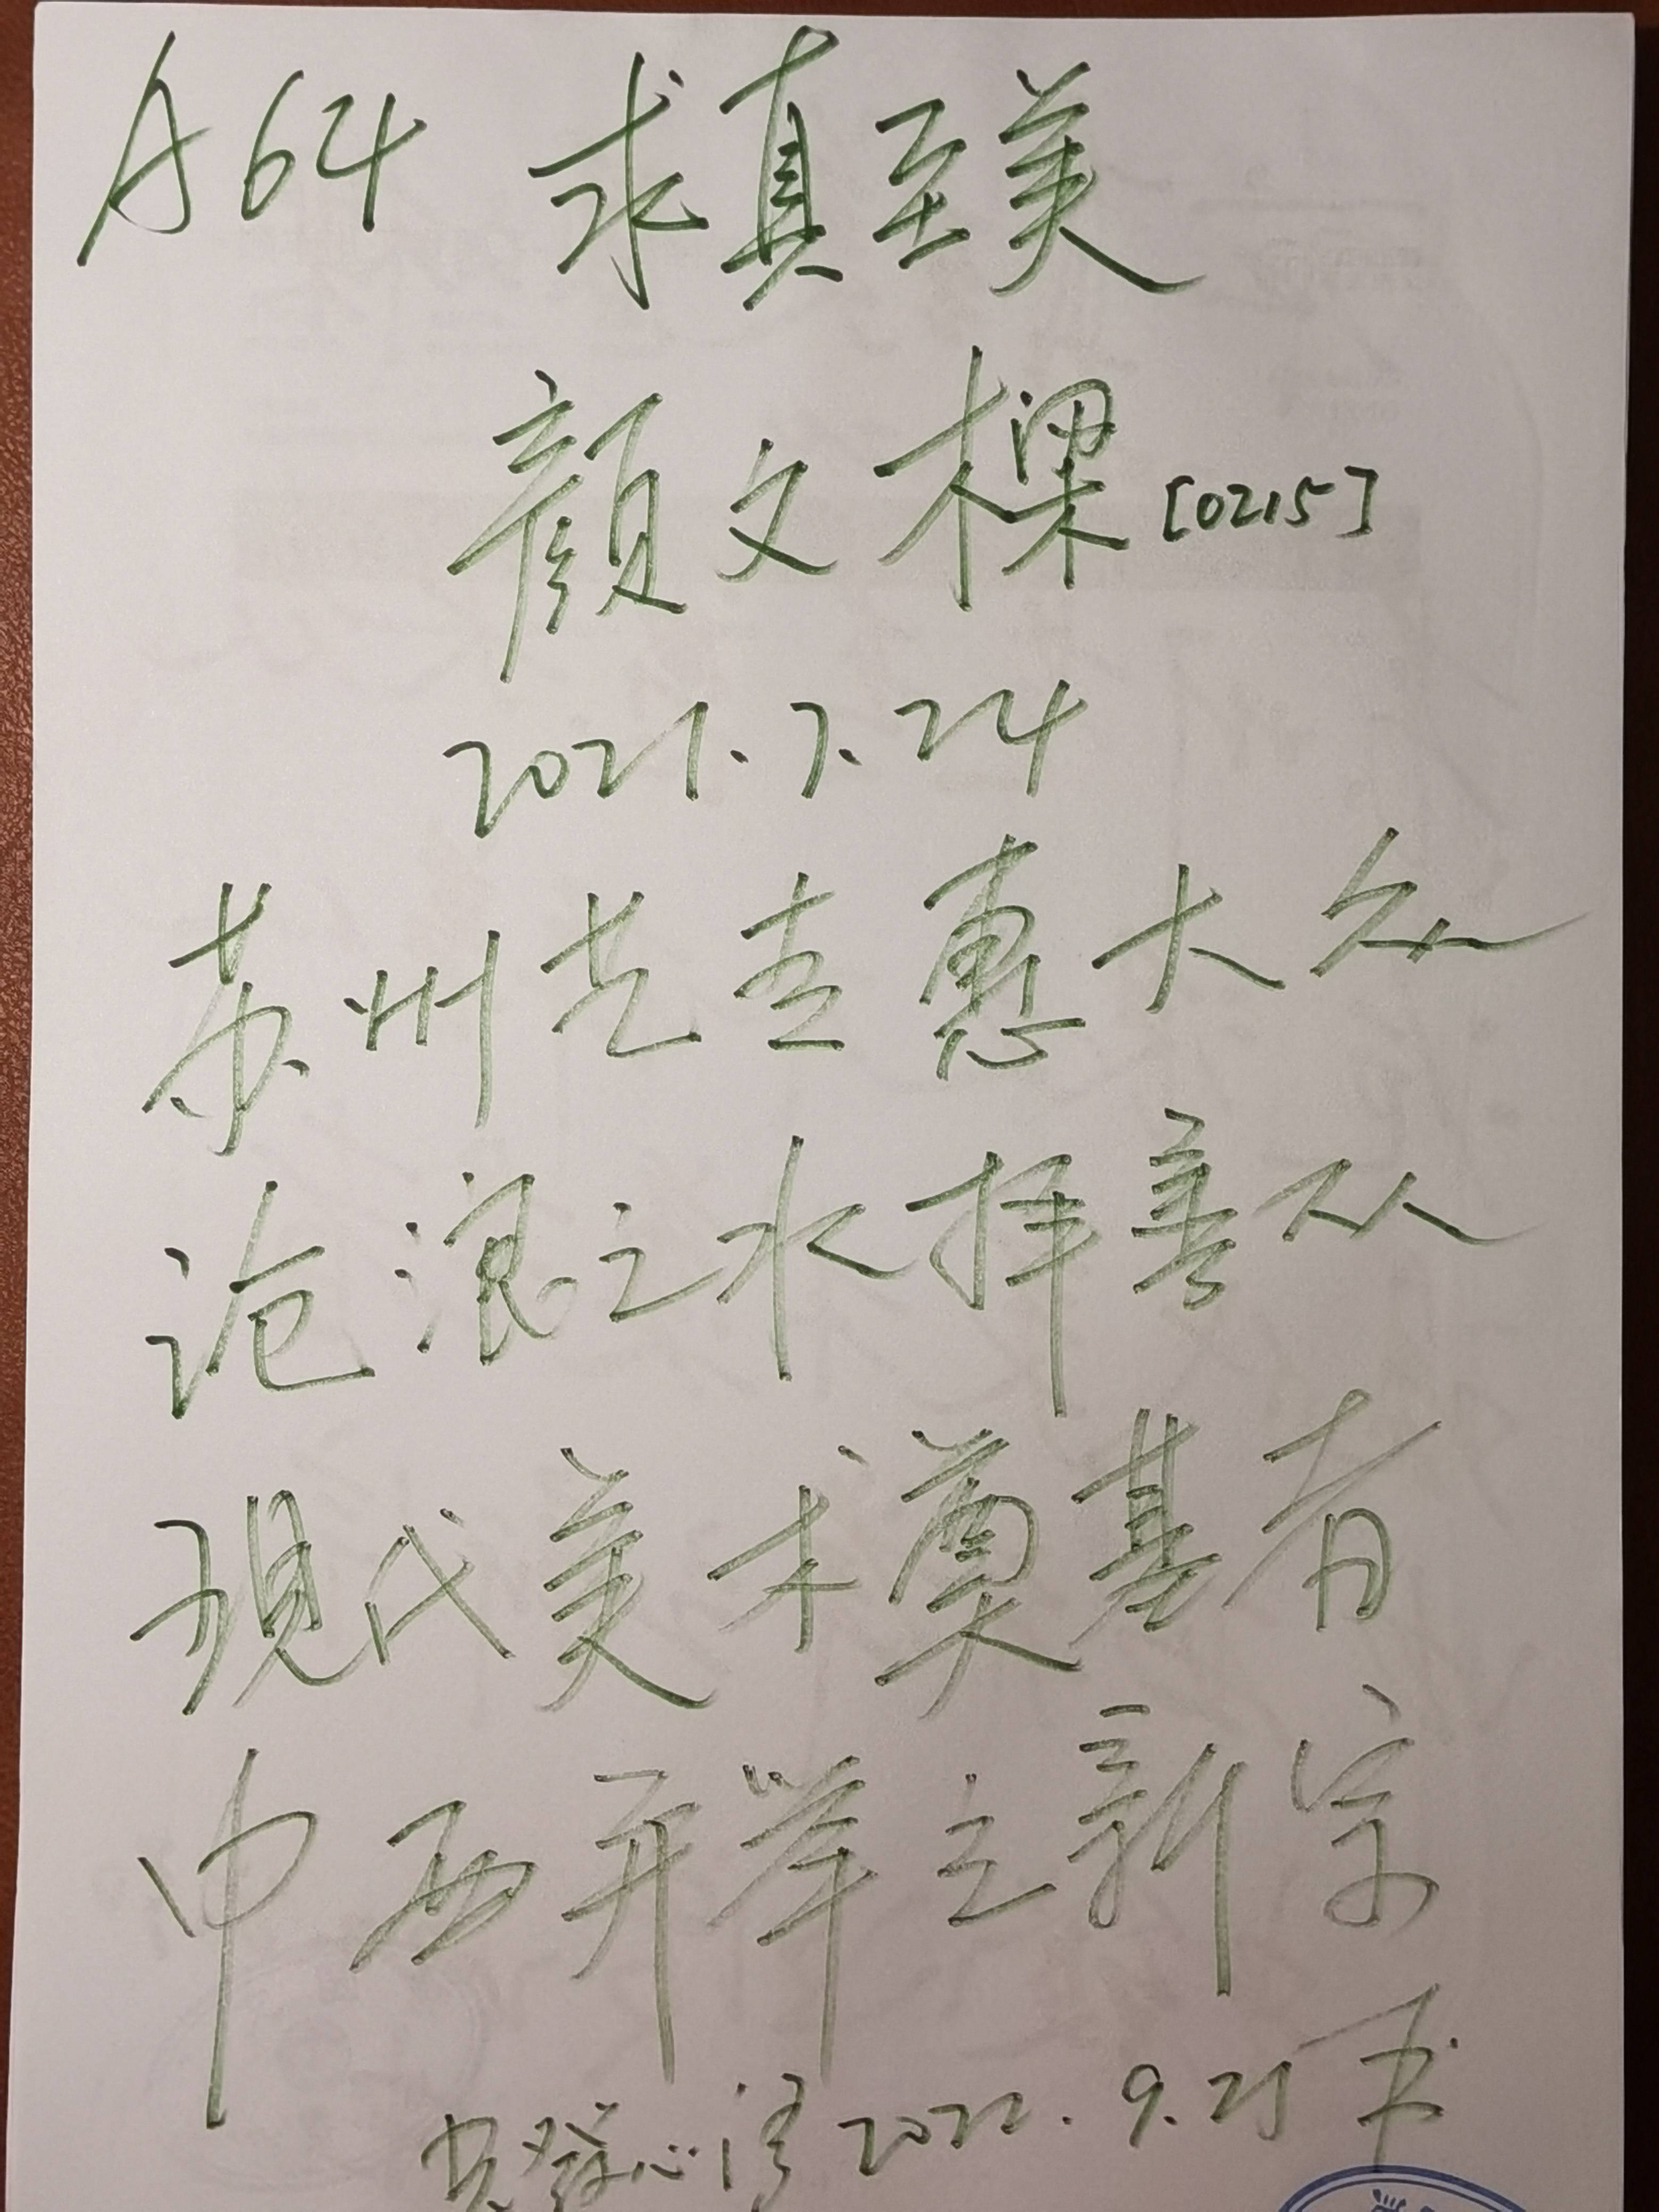 A64 求真至美
颜文樑 [0215]
2021.7.24
苏州先生惠大众
沧浪之水择善从
现代美术奠基者
中西并举立新宗
2022.9.25 书